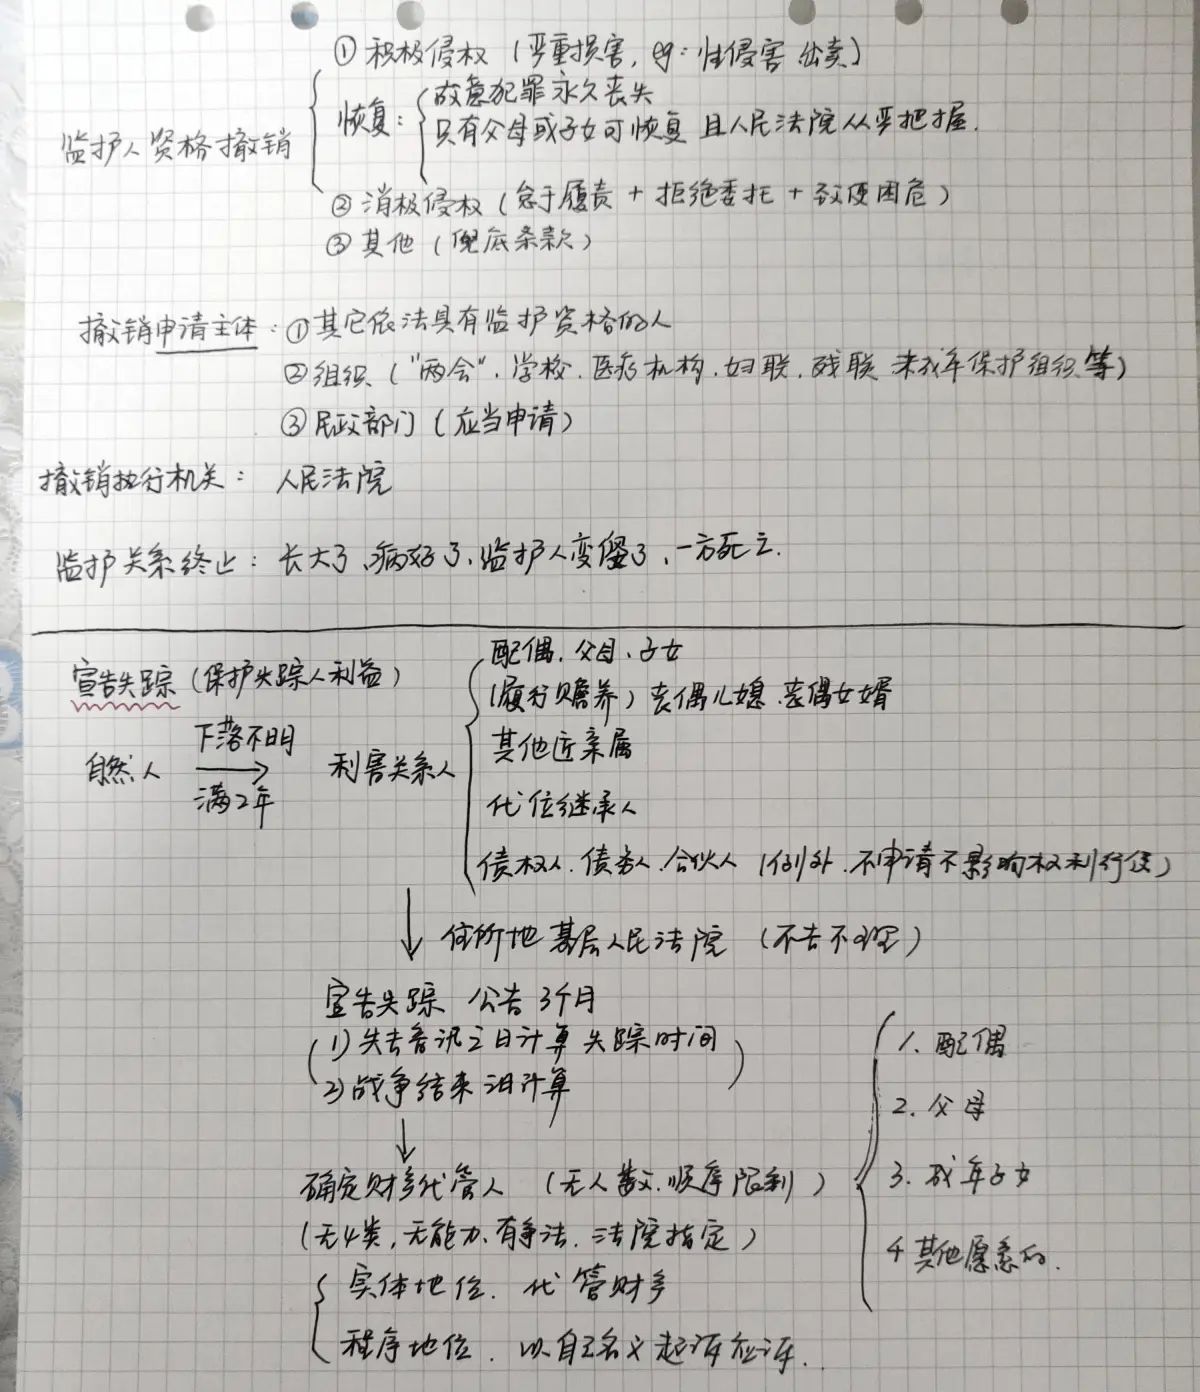 ① 积极侵权（严重损害，eg：性侵害 出卖）
监护人资格撤销
恢复：
故意犯罪永久丧失
只有父母或子女可恢复 且人民法院从严把握.
② 消极侵权（怠于履责 + 拒绝委托 + 致使困危）
③ 其他（兜底条款）
撤销申请主体：①其它依法具有监护资格的人
②组织（“两会”、学校、医疗机构、妇联、残联 未成年保护组织等）
③民政部门（应当申请）
撤销执行机关： 人民法院
监护关系终止：长大了、病好了、监护人变傻了、一方死亡.
宣告失踪（保护失踪人利益）
自然人
下落不明
满2年
利害关系人
配偶、父母、子女
（履行赡养）丧偶儿媳、丧偶女婿
其他近亲属
代位继承人
债权人、债务人、合伙人（例外、不申请不影响权利行使）
住所地基层人民法院（不告不理）
宣告失踪 公告3个月
(1) 失去音讯之日计算 失踪时间
2) 战争结束 日计算
确定财产代管人（无人数、顺序限制）
1. 配偶
2. 父母
3. 成年子女
4 其他愿意的.
（无4类，无能力、有争法、法院指定）
实体地位、代管财产
程序地位、以自己名义起诉应诉..